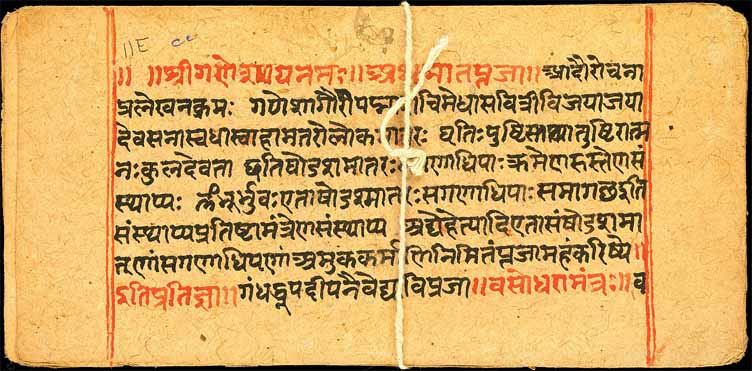 11E
॥ ॥श्रीगणेशायनमः॥ ॥अथ मातृपूजा॥ आदौरोचना
प्रलेखनक्रमः गणेशगौरीपद्मा शचिमेधासवित्रीविजयाजया
देवसेनास्वधास्वाहामातरोलोकमातरः धृतिःपुष्टिस्तथातुष्टिरात्म
नःकुलदेवता एतिषोडशमातरः गणाधिपाः क्रमेणहस्तेणसं
स्थाप्यः ॐभूर्भुवःएताषोडशमातरःसगणाधिपाःसमागछइति
संस्थाप्यप्रतिष्ठामंत्रेणसंस्थाप्य अद्येहेत्यादिएतासंषोडशमा
तॄणांसगणाधिपाणां अमुककर्म निमितंपूजामहंकरिष्ये॥
इतिप्रतिज्ञा॥ गंधधूपदीपनैवेद्य विपूजा॥वसोधरामंत्रः॥ व